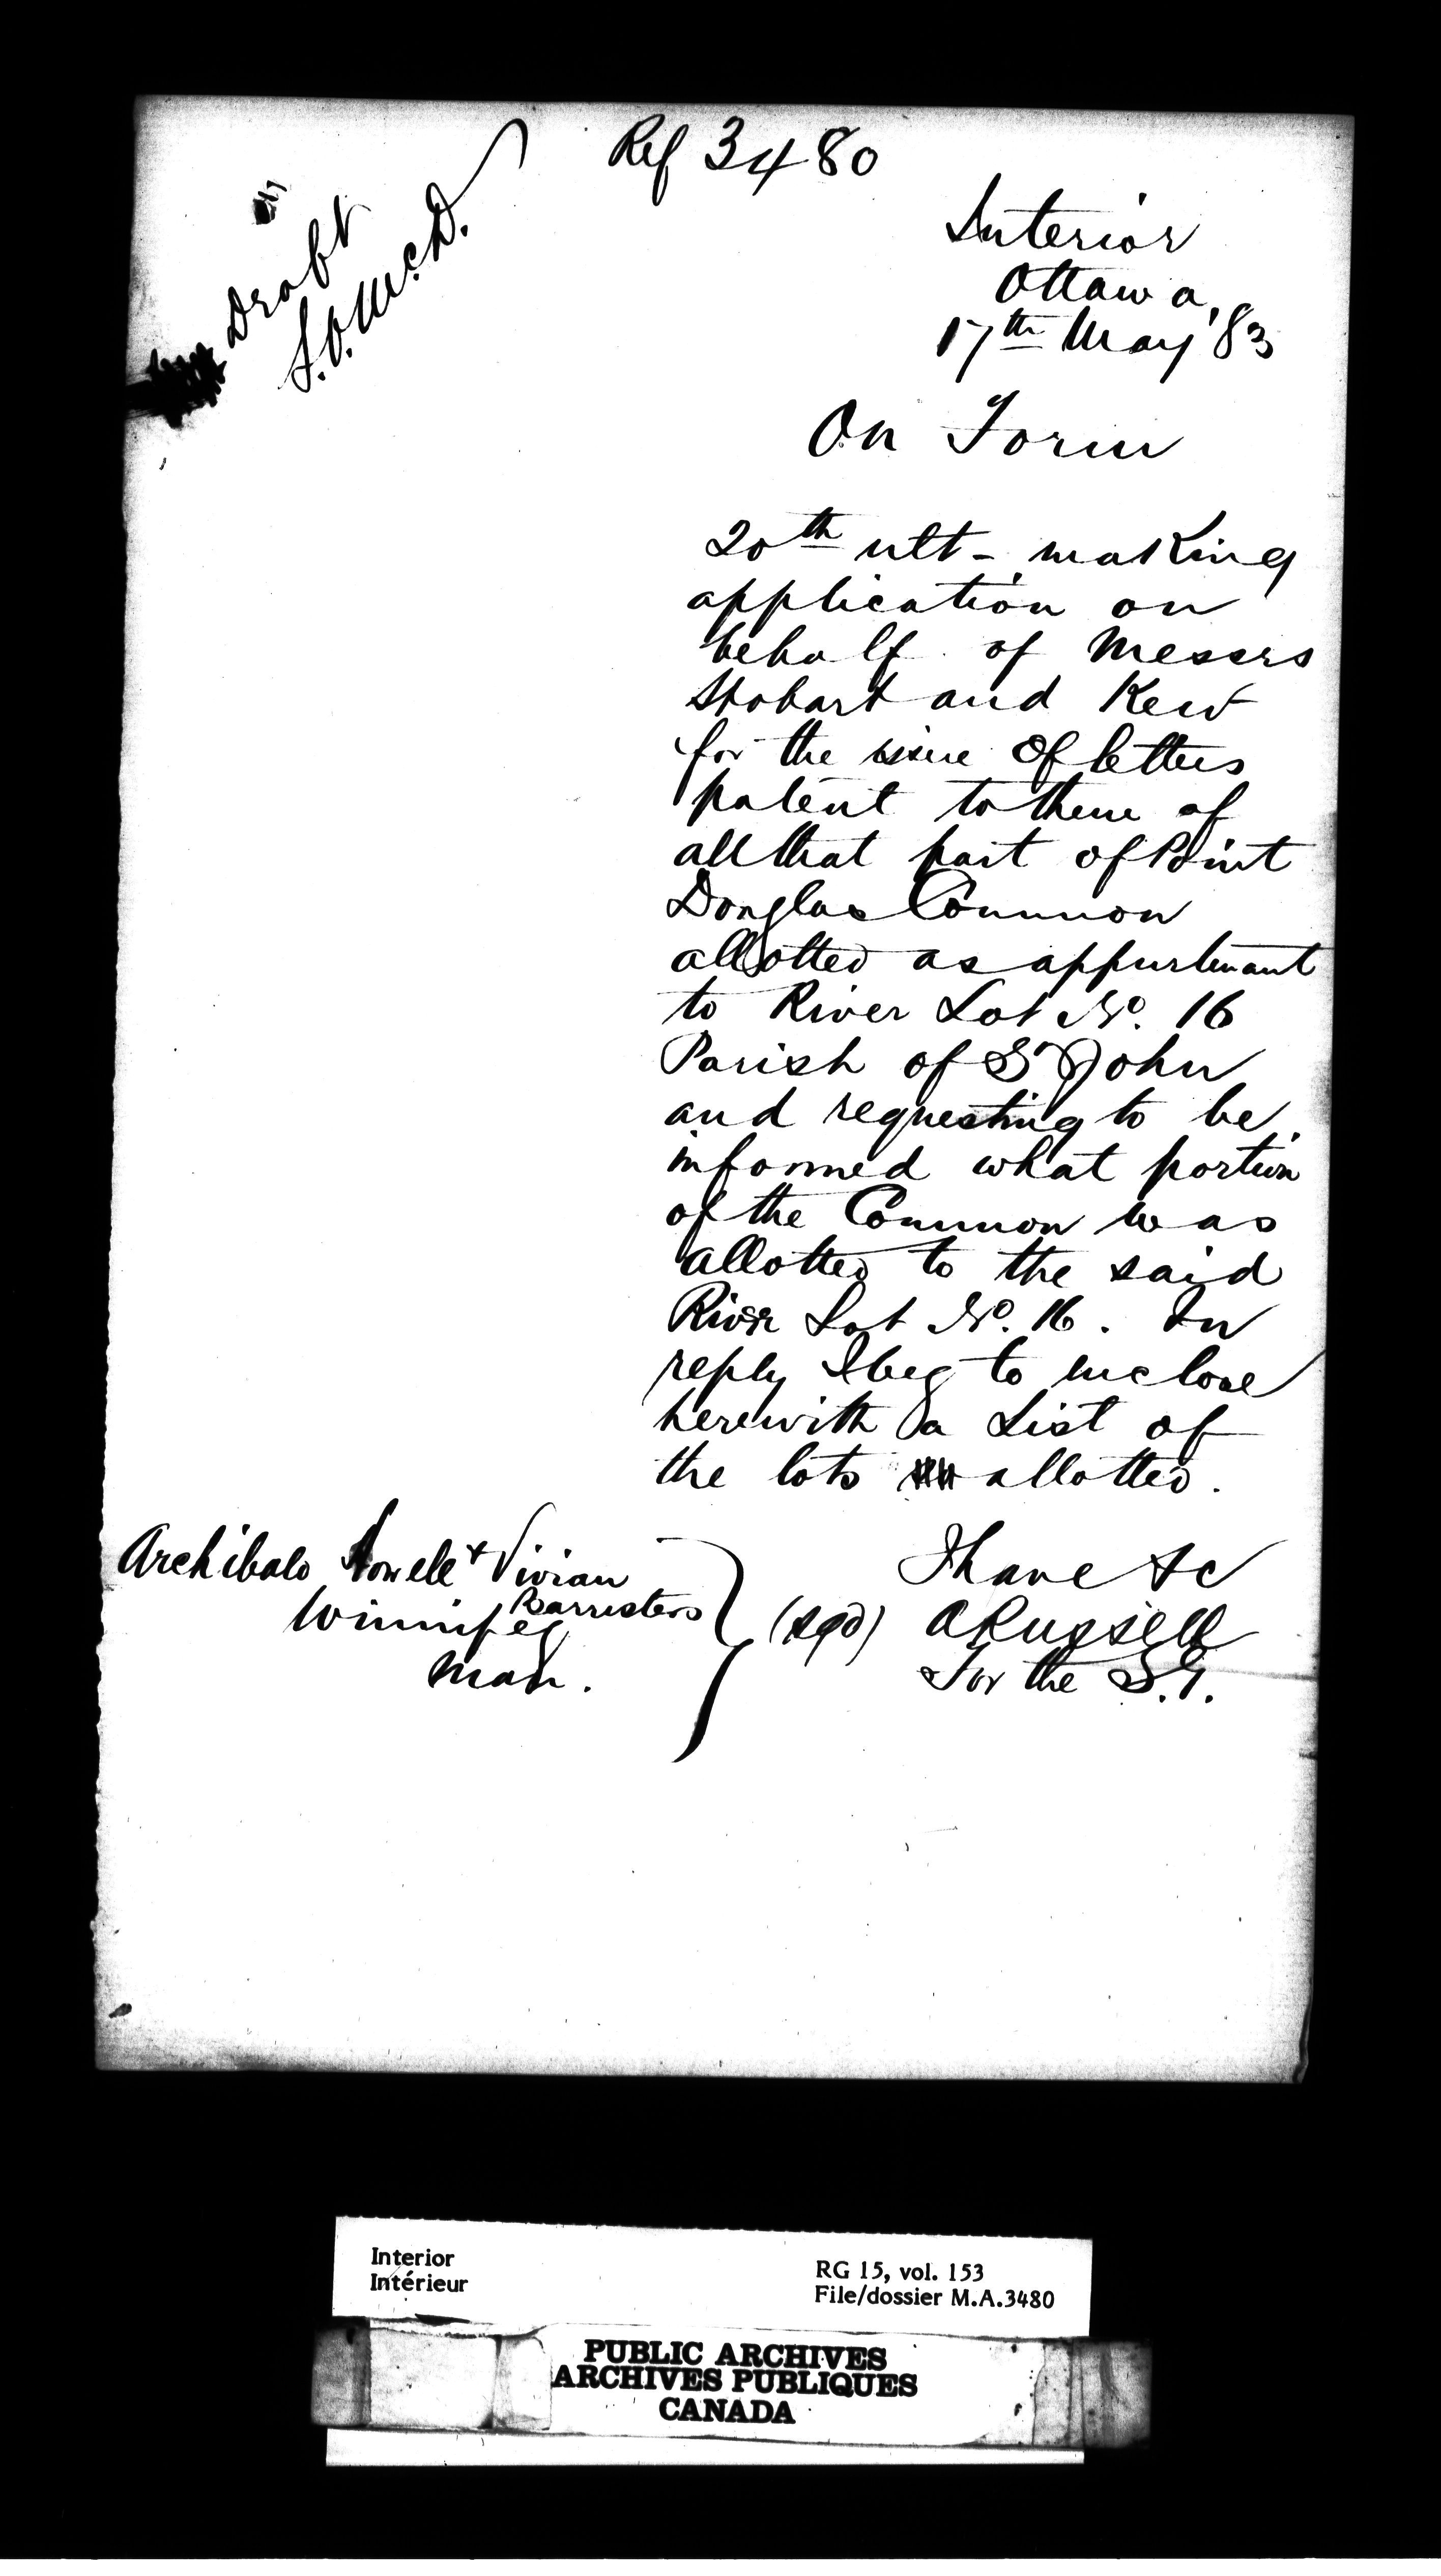 Ref 3480
Draft
Interior
Ottawa,
17th May '83
On Form
20th ult - making
application on
behalf of Messrs
Stobart and Kew
for the issue of letters
patent to them of
all that part of Point
Douglas Common
allotted as appurtenant
to River Lot No. 16
Parish of St John
and requesting to be
informed what portion
of the Common was
allotted to the said
River Lot No. 16. In
reply I beg to inclose
herewith a List of
the lots allotted.
Archibald Howell & Vivian
Barristers
Winnipeg
Man.
I have &c
(sgd) A Russell
For the S.G.
Interior
Intérieur
RG 15, vol. 153
File/dossier M.A.3480
PUBLIC ARCHIVES
ARCHIVES PUBLIQUES
CANADA